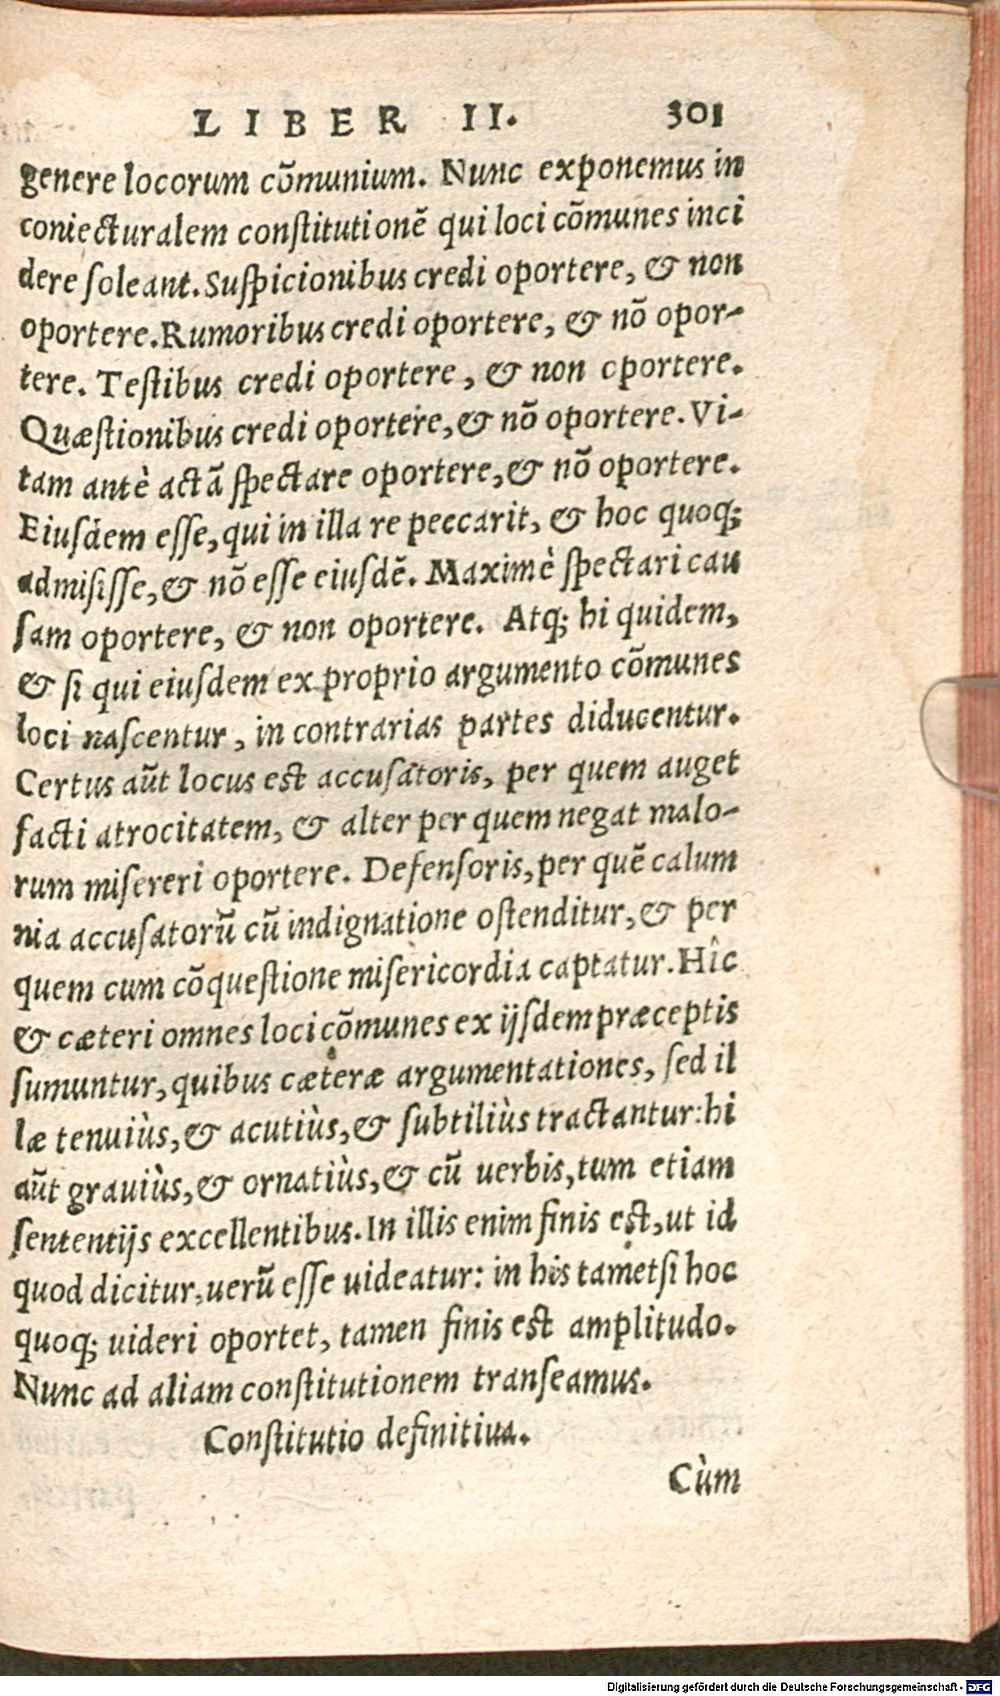 LIBER II. 301
genere locorum cõmunium. Nunc exponemus in
coniecturalem constitutionẽ qui loci cõmunes inci
dere soleant. Suspicionibus credi oportere, & non
oportere. Rumoribus credi oportere, & nõ opor-
tere. Testibus credi oportere, & non oportere.
Quæstionibus credi oportere, & nõ oportere. Vi-
tam antè actã spectare oportere, & nõ oportere.
Eiusdem esse, qui in illa re peccarit, & hoc quoq;
admisisse, & nõ esse eiusdẽ. Maximè spectari cau
sam oportere, & non oportere. Atq; hi quidem,
& si qui eiusdem ex proprio argumento cõmunes
loci nascentur, in contrarias partes diducentur.
Certus aũt locus est accusatoris, per quem auget
facti atrocitatem, & alter per quem negat malo-
rum misereri oportere. Defensoris, per quẽ calum
nia accusatorũ cũ indignatione ostenditur, & per
quem cum cõquestione misericordia captatur. Hîc
& cæteri omnes loci cõmunes ex ijsdem præceptis
sumuntur, quibus cæteræ argumentationes, sed il
læ tenuiùs, & acutiùs, & subtiliùs tractantur: hi
aũt grauiùs, & ornatiùs, & cũ uerbis, tum etiam
sententijs excellentibus. In illis enim finis est, ut id
quod dicitur, uerũ esse uideatur: in his tametsi hoc
quoq; uideri oportet, tamen finis est amplitudo.
Nunc ad aliam constitutionem transeamus.
Constitutio definitiua.
Cùm
Digitalisierung gefördert durch die Deutsche Forschungsgemeinschaft - DFG